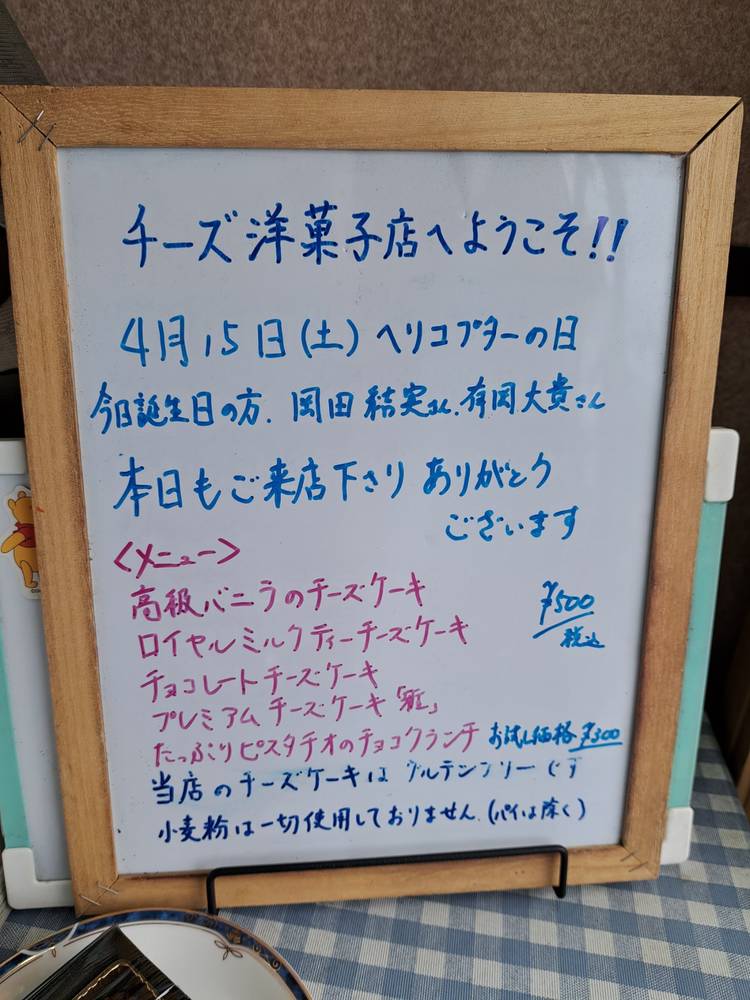 チーズ洋菓子店へようこそ!!
4月15日(土) ヘリコプターの日
今日誕生日の方、岡田結実さん、有岡大貴さん
本日もご来店下さり ありがとう
ございます
<メニュー>
高級バニラのチーズケーキ
¥500
税込
ロイヤルミルクティーチーズケーキ
チョコレートチーズケーキ
プレミアムチーズケーキ「雅」
たっぷりピスタチオのチョコクランチ お試し価格 ¥300
当店のチーズケーキは グルテンフリーです
小麦粉は一切使用しておりません。(パイは除く)